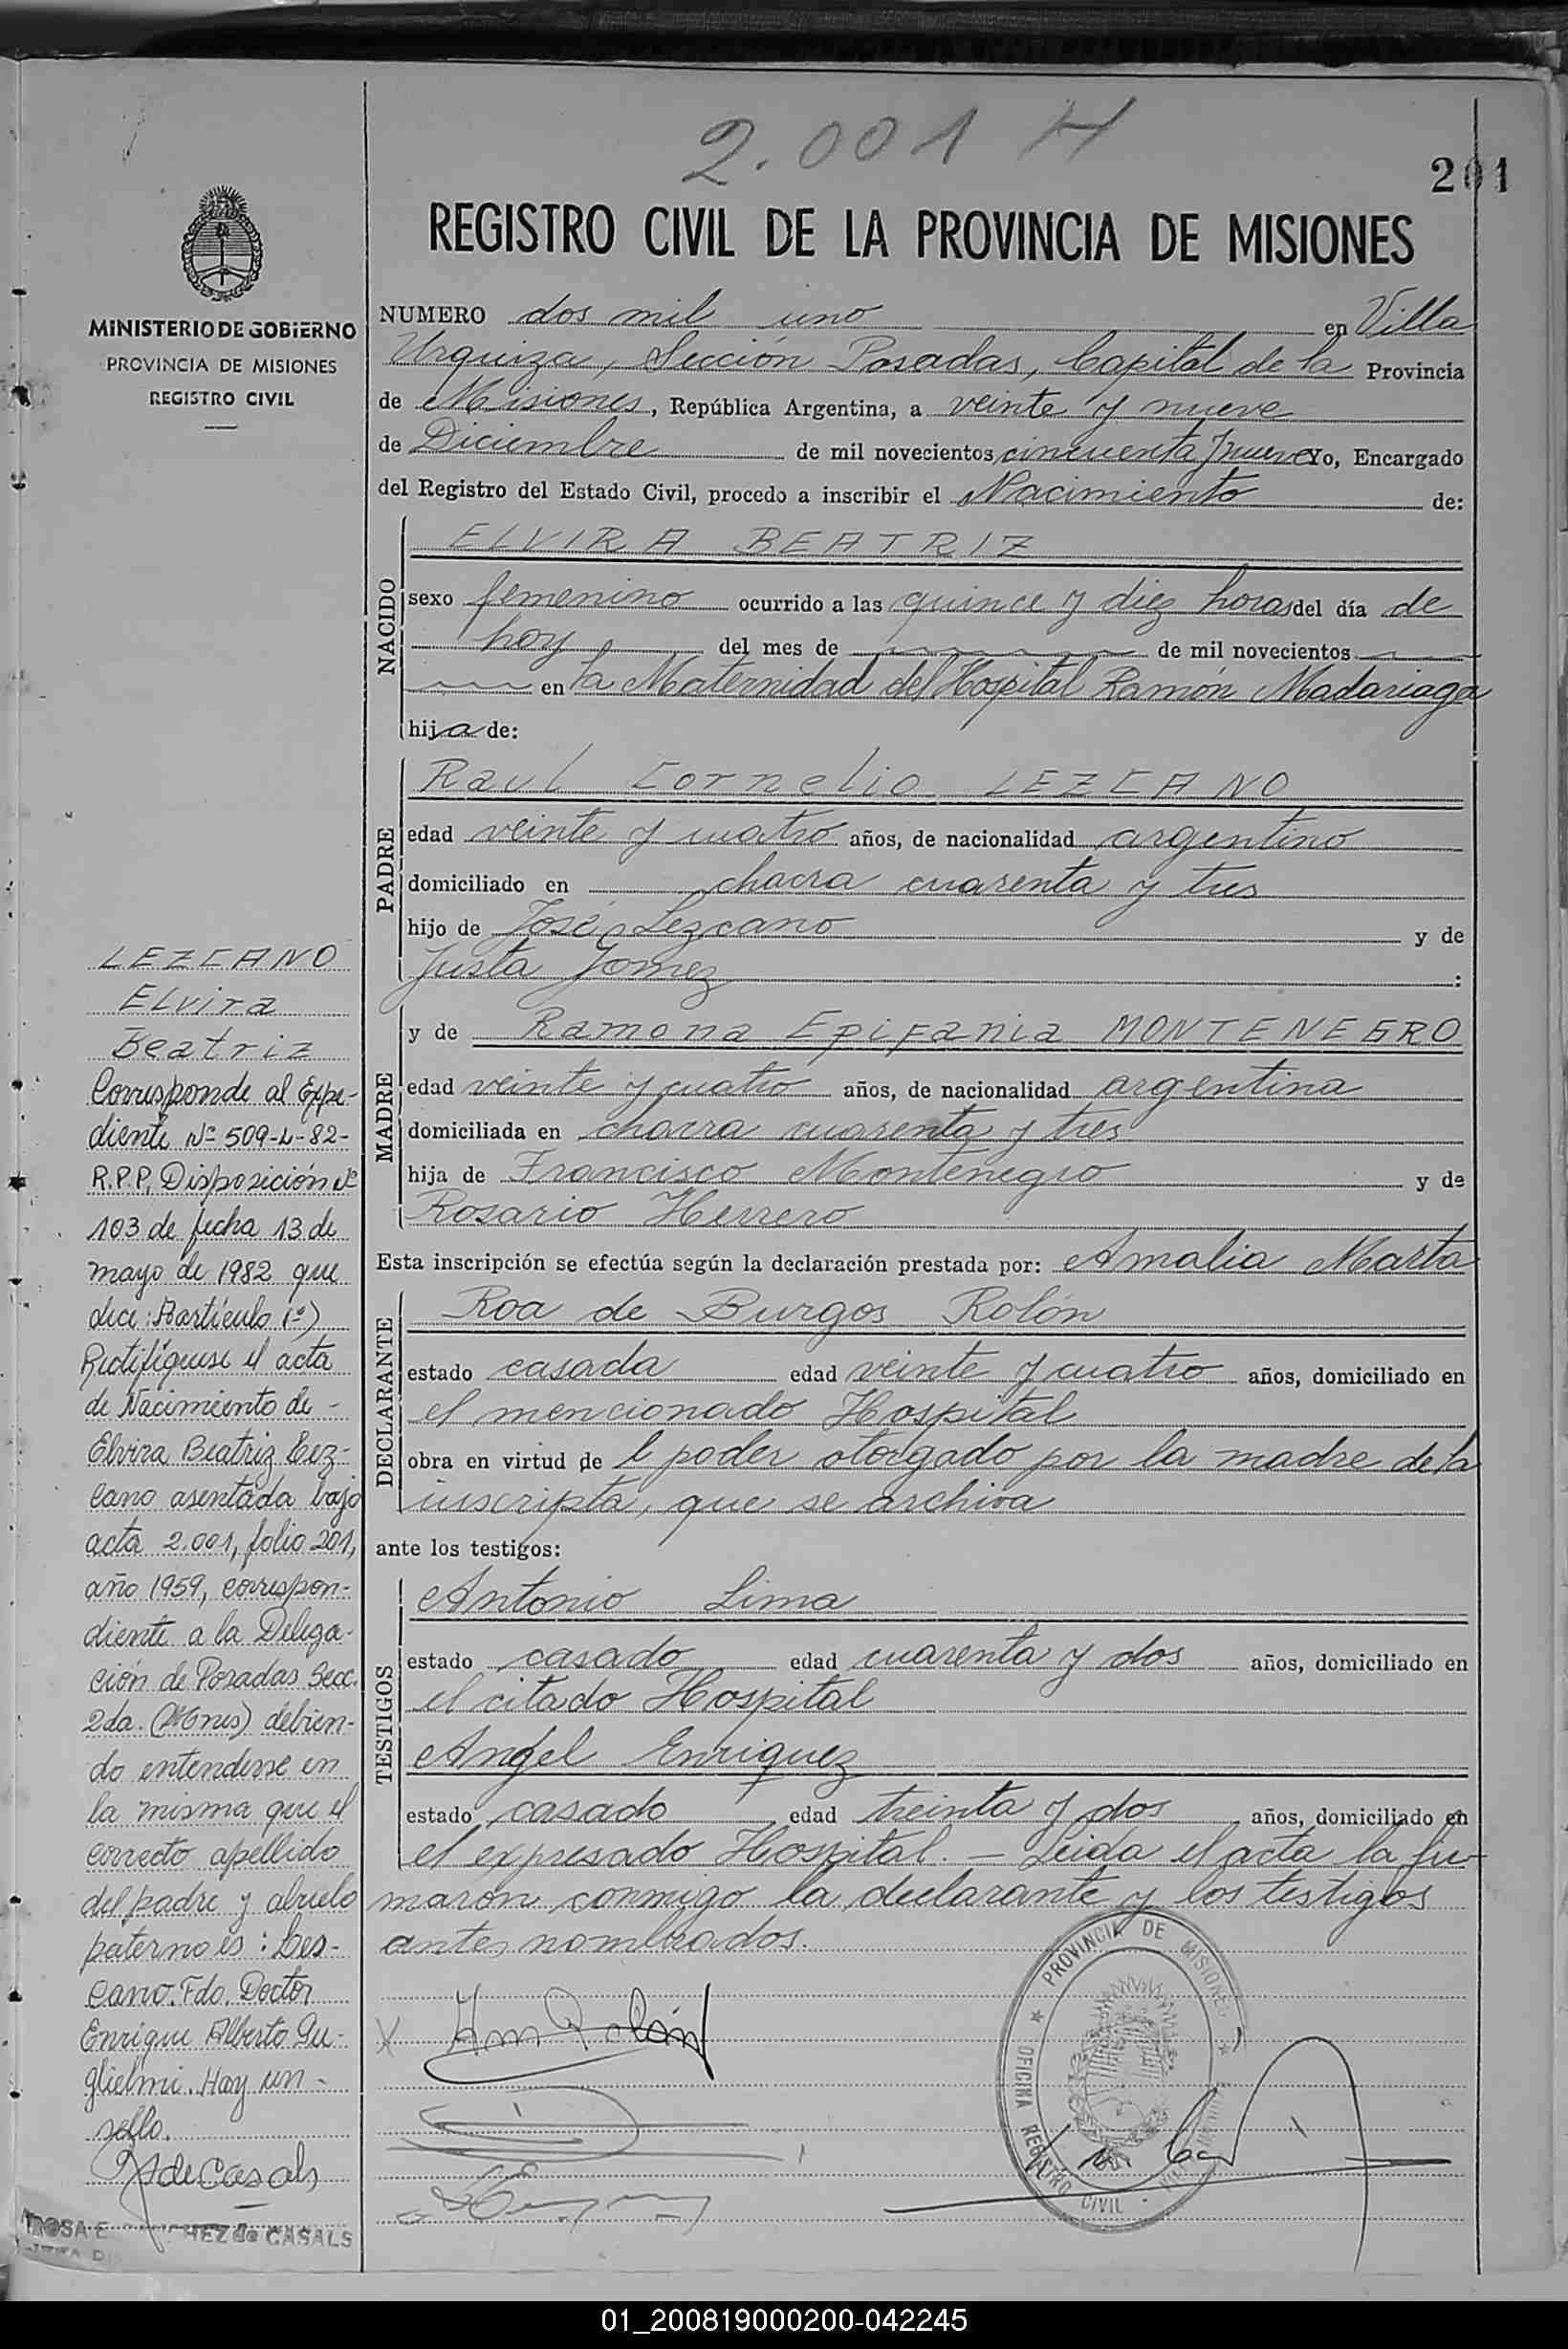 2.001 H
201
REGISTRO CIVIL DE LA PROVINCIA DE MISIONES
MINISTERIO DE GOBIERNO
PROVINCIA DE MISIONES
REGISTRO CIVIL
NUMERO dos mil uno en Villa
Urquiza, Sección Posadas, Capital de la Provincia
de Misiones, República Argentina, a veinte y nueve
de Diciembre de mil novecientos cincuenta y nueve Yo, Encargado
del Registro del Estado Civil, procedo a inscribir el Nacimiento de:
NACIDO
ELVIRA BEATRIZ
sexo femenino ocurrido a las quince y diez horas del día de
hoy del mes de de mil novecientos
en la Maternidad del Hospital Ramón Madariaga
hija de:
PADRE
Raul Cornelio LEZCANO
edad veinte y cuatro años, de nacionalidad argentino
domiciliado en chacra cuarenta y tres
hijo de José Lezcano y de
Justa Gomez :
MADRE
y de Ramona Epifania MONTENEGRO
edad veinte y cuatro años, de nacionalidad argentina
domiciliada en chacra cuarenta y tres
hija de Francisco Montenegro y de
Rosario Herrero
Esta inscripción se efectúa según la declaración prestada por: Amalia Marta
DECLARANTE
Roa de Burgos Rolón
estado casada edad veinte y cuatro años, domiciliado en
el mencionado Hospital
obra en virtud de l poder otorgado por la madre de la
inscripta, que se archiva
ante los testigos:
TESTIGOS
Antonio Lima
estado casado edad cuarenta y dos años, domiciliado en
el citado Hospital
Angel Enriquez
estado casado edad treinta y dos años, domiciliado en
el expresado Hospital. — Leida el acta la fir-
maron conmigo la declarante y los testigos
antes nombrados.
LEZCANO
Elvira
Beatriz
Corresponde al Expe-
diente Nº 509-L-82-
R.P.P. Disposición Nº
103 de fecha 13 de
mayo de 1982 que
dice: Artículo 1º)
Rectifíquese el acta
de Nacimiento de -
Elvira Beatriz Lez-
cano asentada bajo
acta 2.001, folio 201,
año 1959, correspon-
diente a la Delega-
ción de Posadas Secc.
2da. (Mnes) debien-
do entenderse en
la misma que el
correcto apellido
del padre y abuelo
paterno es: Les-
cano. Fdo. Doctor
Enrique Alberto Gu-
glielmi. Hay un -
sello.
de Casals
PROVINCIA DE MISIONES
OFICINA REGISTRO CIVIL
de CASALS
01_200819000200-042245